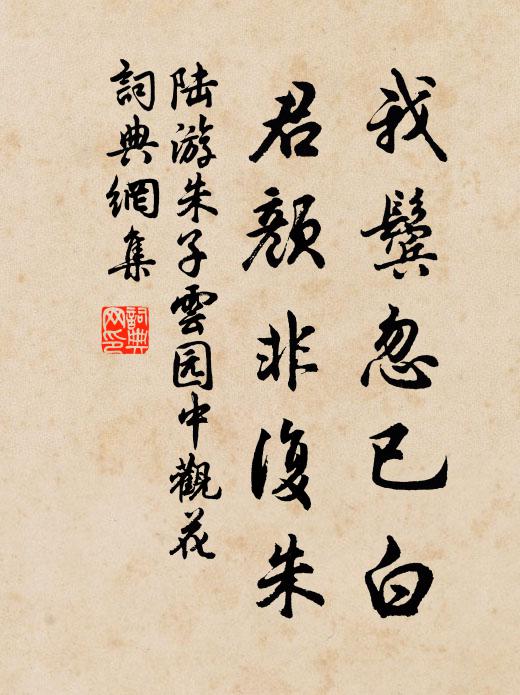 我鬓忽已白
君颜非復朱
陆游朱子雲园中觀花
詞典網集
詞典网印